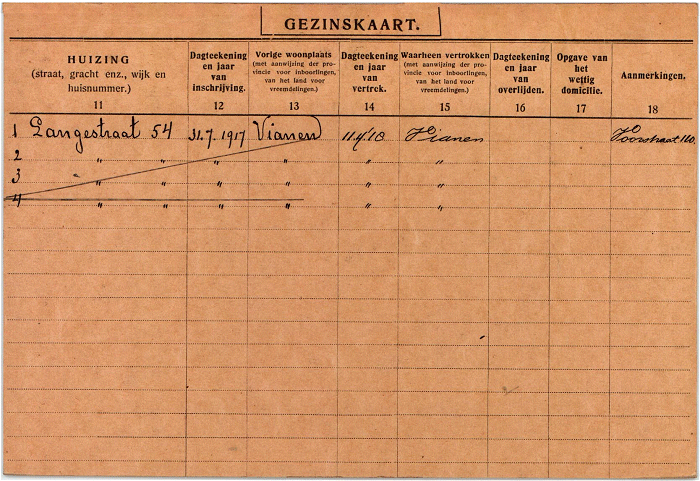 GEZINSKAART.
HUIZING
(straat, gracht enz., wijk en
huisnummer.)
11
Dagteekening
en jaar
van
inschrijving.
12
Vorige woonplaats
(met aanwijzing der pro-
vincie voor inboorlingen,
van het land voor
vreemdelingen.)
13
Dagteekening
en jaar
van
vertrek.
14
Waarheen vertrokken
(met aanwijzing der pro-
vincie voor inboorlingen,
van het land voor
vreemdelingen.)
15
Dagteekening
en jaar
van
overlijden.
16
Opgave van
het
wettig
domicilie.
17
Aanmerkingen.
18
1 Langestraat 54 31.7.1917 Vianen Vianen Voorstraat 110.
2 " " " " " "
3 " " " " " "
4 " " " " " "